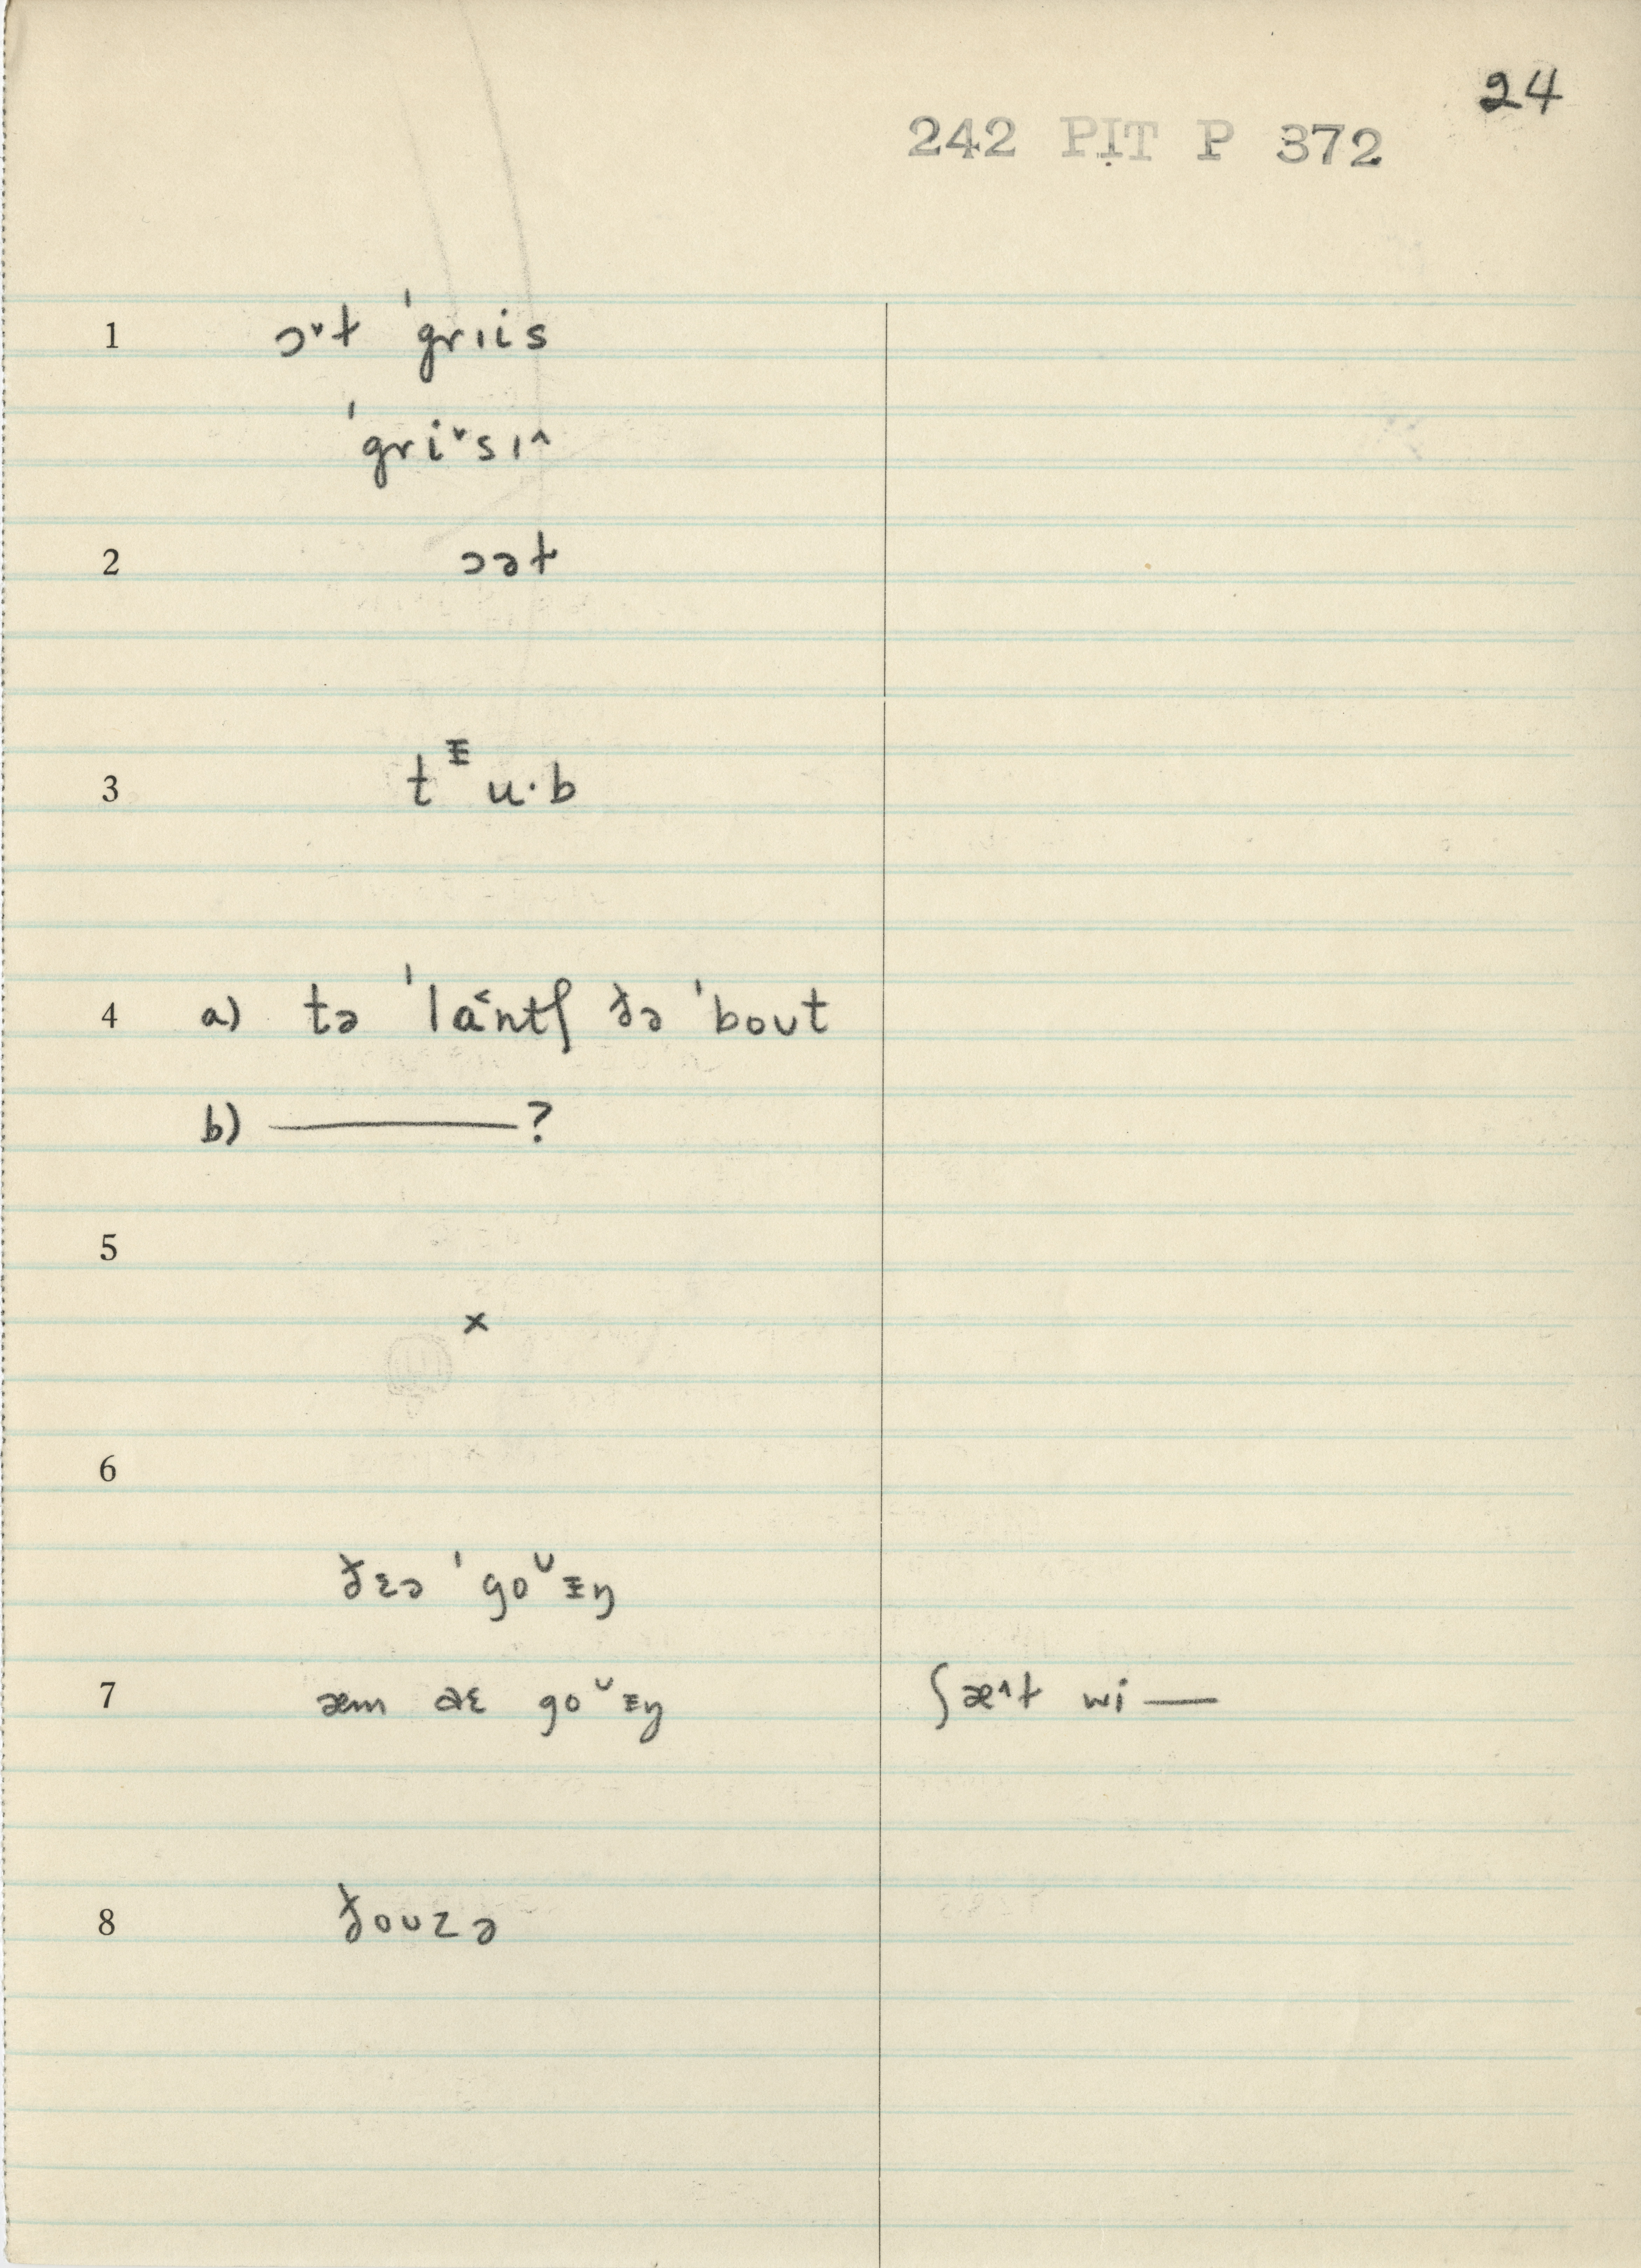 24
242 PIT P 372
1 ɔ˅ɫ ˈgrɪis
ˈgri˅sɪ^
2 ɔəɫ
3 tᵻu·b
4 a) tə ˈla˂ntʃ ðə ˈbout
b) ——— ?
5
×
6
ðɛə ˈgoᵁᵻŋ
7 æm əɛ goᵁᵻŋ ʃæ^ɫ wi —
8 ðouzə